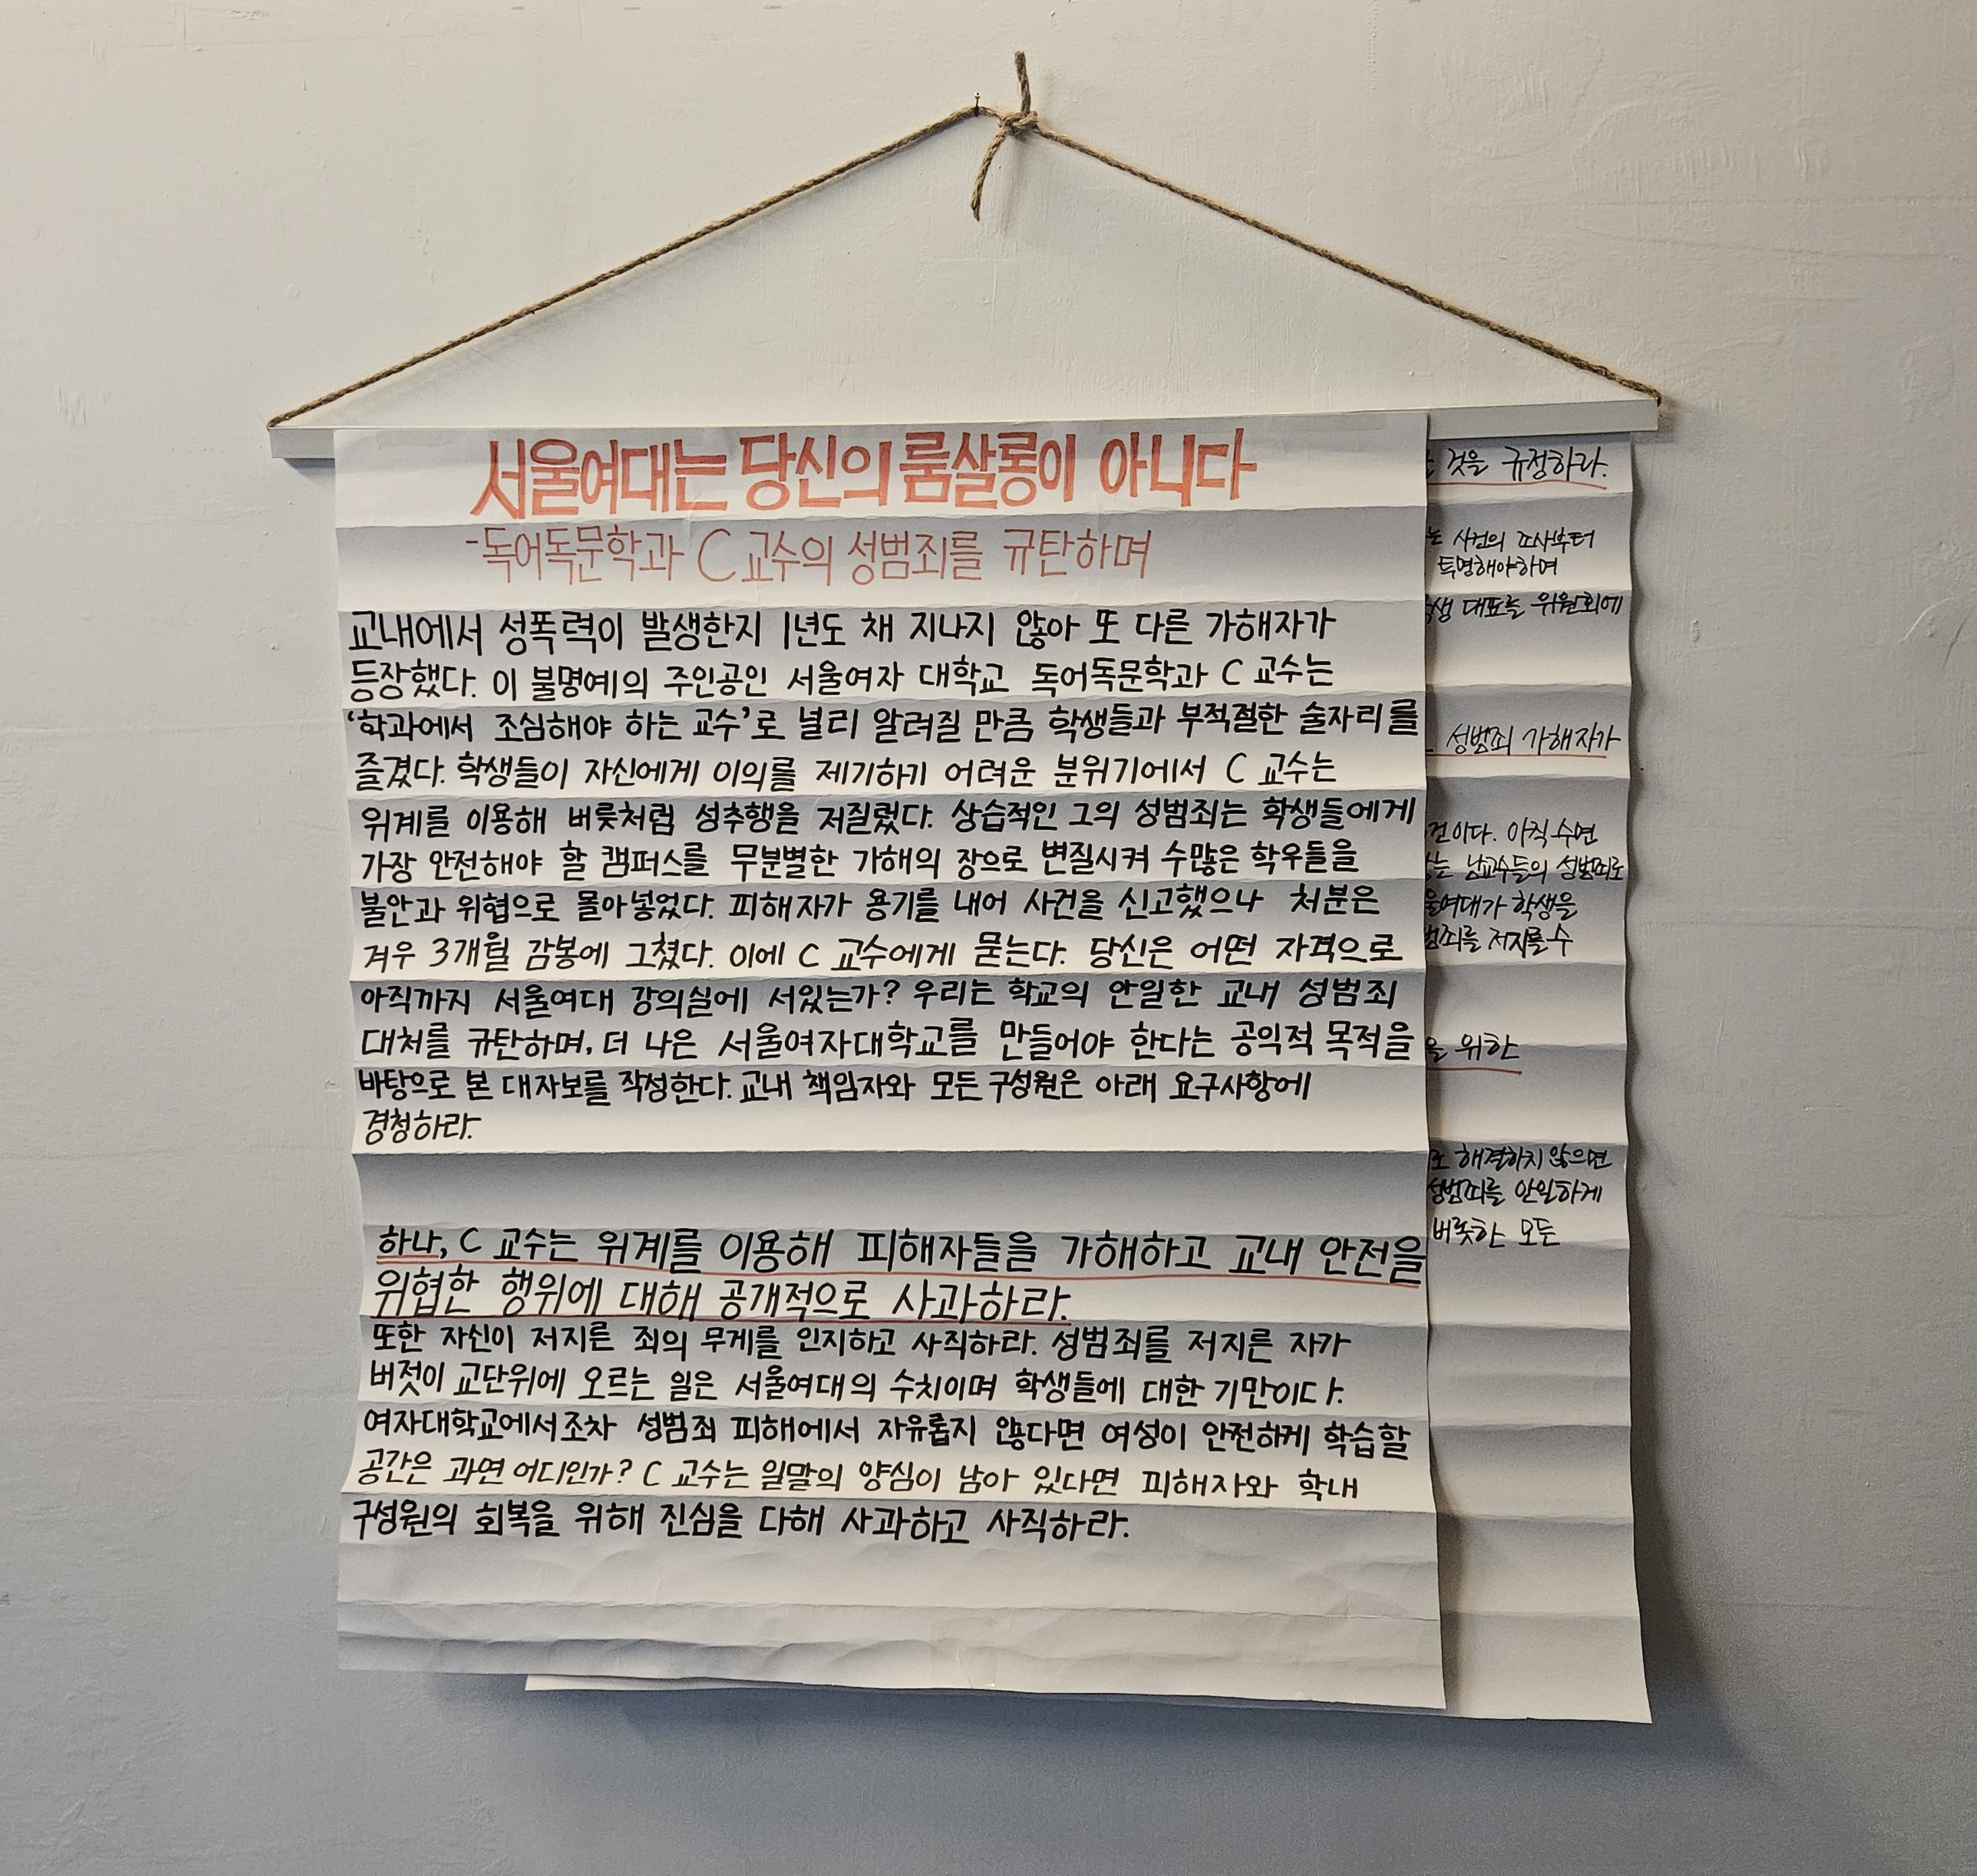 서울여대는 당신의 룸살롱이 아니다
-독어독문학과 C교수의 성범죄를 규탄하며
교내에서 성폭력이 발생한지 1년도 채 지나지 않아 또 다른 가해자가
등장했다. 이 불명예의 주인공인 서울여자 대학교 독어독문학과 C 교수는
'학과에서 조심해야 하는 교수'로 널리 알려질 만큼 학생들과 부적절한 술자리를
즐겼다. 학생들이 자신에게 이의를 제기하기 어려운 분위기에서 C 교수는
위계를 이용해 버릇처럼 성추행을 저질렀다. 상습적인 그의 성범죄는 학생들에게
가장 안전해야 할 캠퍼스를 무분별한 가해의 장으로 변질시켜 수많은 학우들을
불안과 위협으로 몰아넣었다. 피해자가 용기를 내어 사건을 신고했으나 처분은
겨우 3개월 감봉에 그쳤다. 이에 C 교수에게 묻는다. 당신은 어떤 자격으로
아직까지 서울여대 강의실에 서있는가? 우리는 학교의 안일한 교내 성범죄
대처를 규탄하며, 더 나은 서울여자대학교를 만들어야 한다는 공익적 목적을
바탕으로 본 대자보를 작성한다. 교내 책임자와 모든 구성원은 아래 요구사항에
경청하라.
하나, C 교수는 위계를 이용해 피해자들을 가해하고 교내 안전을
위협한 행위에 대해 공개적으로 사과하라.
또한 자신이 저지른 죄의 무게를 인지하고 사직하라. 성범죄를 저지른 자가
버젓이 교단위에 오르는 일은 서울여대의 수치이며 학생들에 대한 기만이다.
여자대학교에서조차 성범죄 피해에서 자유롭지 않다면 여성이 안전하게 학습할
공간은 과연 어디인가? C 교수는 일말의 양심이 남아 있다면 피해자와 학내
구성원의 회복을 위해 진심을 다해 사과하고 사직하라.
것을 규정하라.
사건의 조사부터
투명해야하며
대표를 위원회에
성범죄 가해자가
아직 수면
남교수들의 성범죄로
학생을
저지를 수
위한
해결하지 않으면
안일하게
버릇한 모든